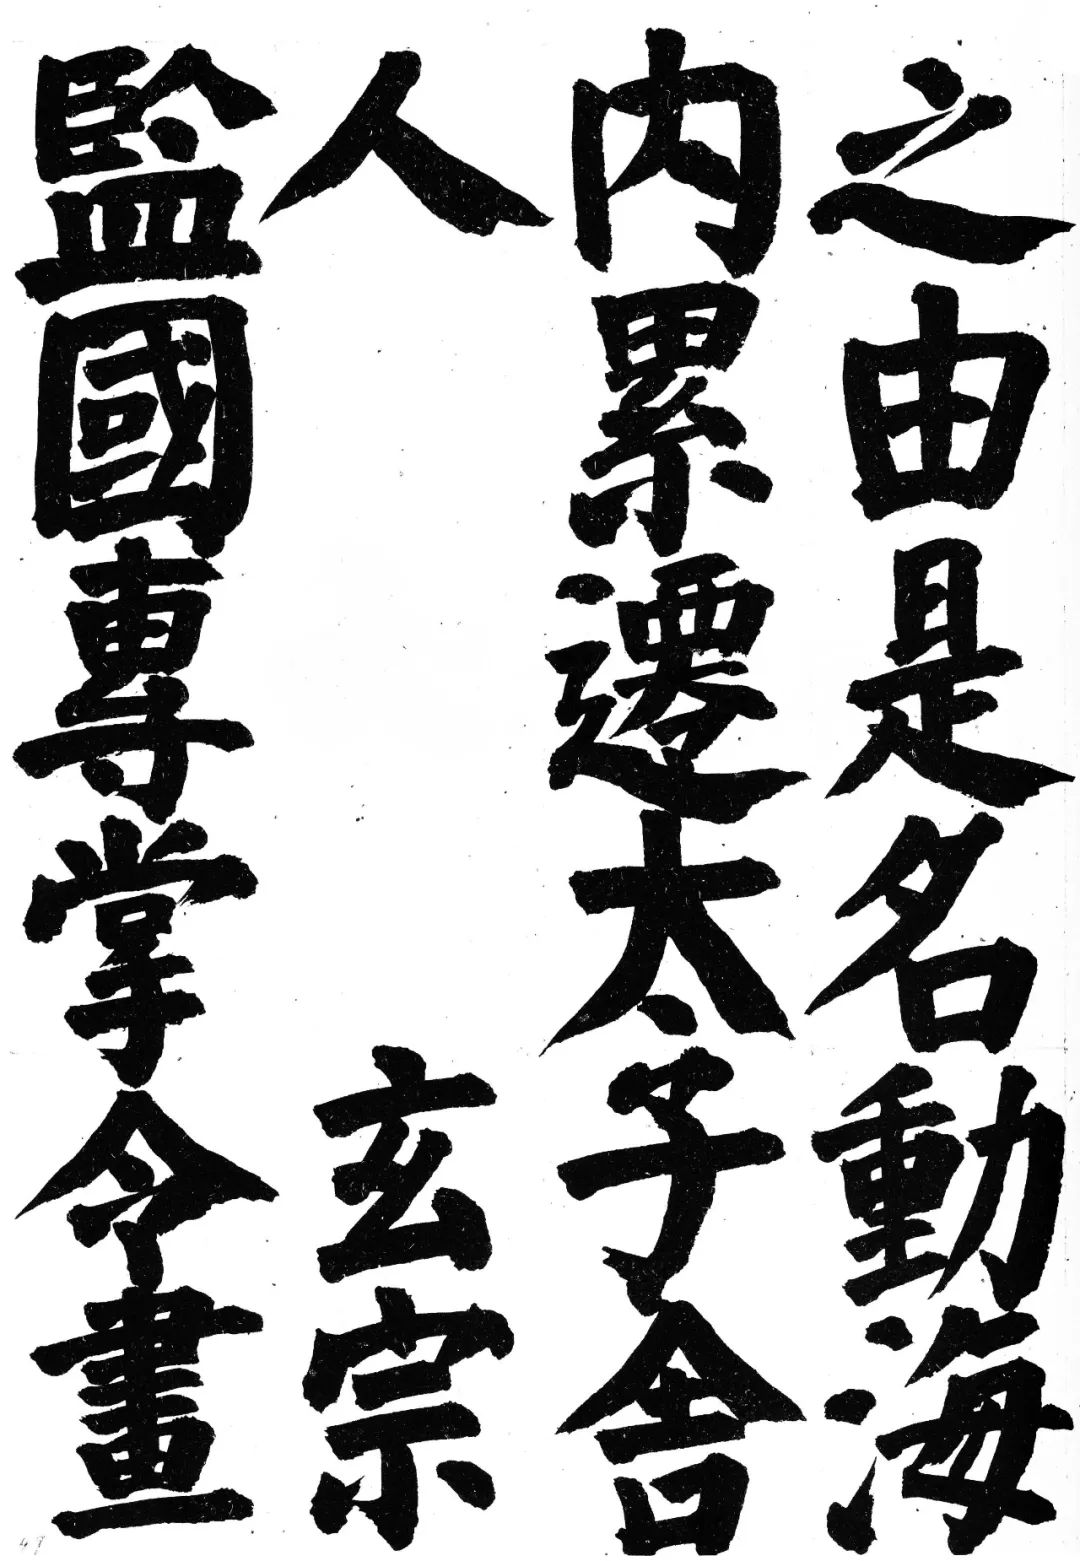 之由是名動海
内累遷太子舍
人 玄宗
監國專掌令畫